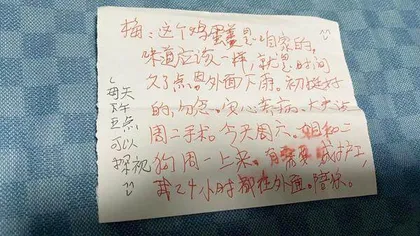 梅：这个鸡蛋羹是咱家的,
味道应该一样，就是时间
久了点因外面下雨。初挺好
的,勿念。安心养病。大夫说
周二手术。今天周六。姐和二
狗周一上来。有需要 找护工,
我24小时都在外面。陪你。
(每天
下午
五点
可以
探视